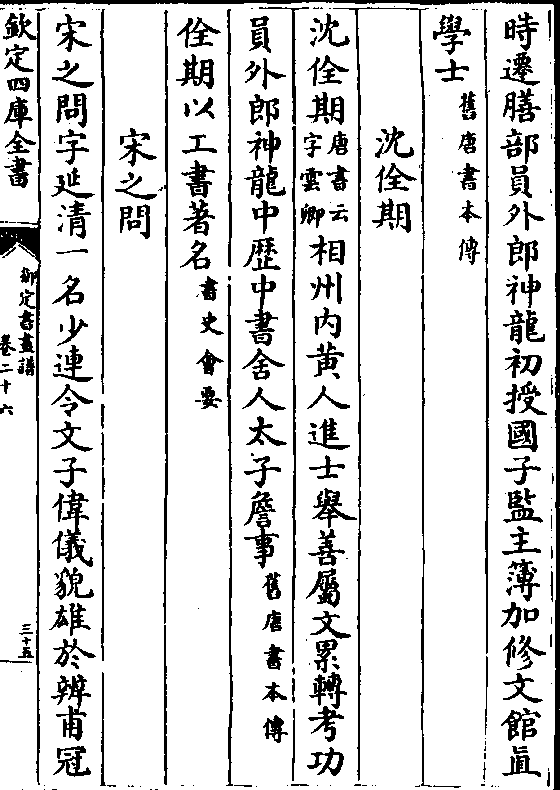 時遷膳部員外郎神龍初授國子監主簿加修文館直
學士舊唐書本傳
沈佺期
沈佺期唐書云字雲卿相州内黄人進士舉善屬文累轉考功
員外郎神龍中歴中書舍人太子詹事舊唐書本傳
佺期以工書著名書史會要
宋之問
宋之問字延清一名少連令文子偉儀貌雄於辨甫冠
欽定四庫全書
御定書畫譜
卷二十六
三十五